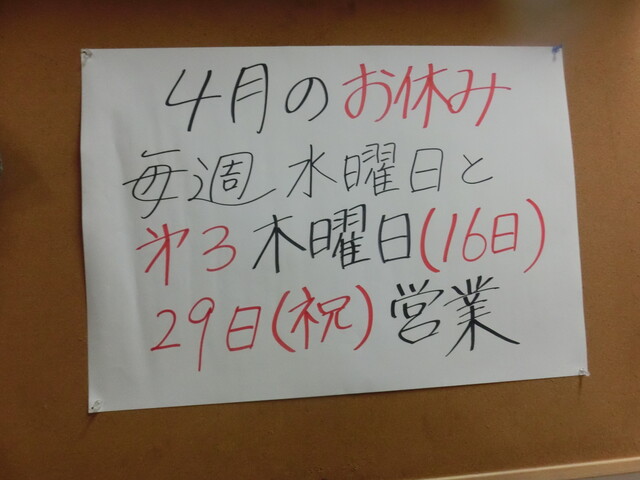 4月のお休み
毎週水曜日と
第3木曜日(16日)
29日(祝)営業